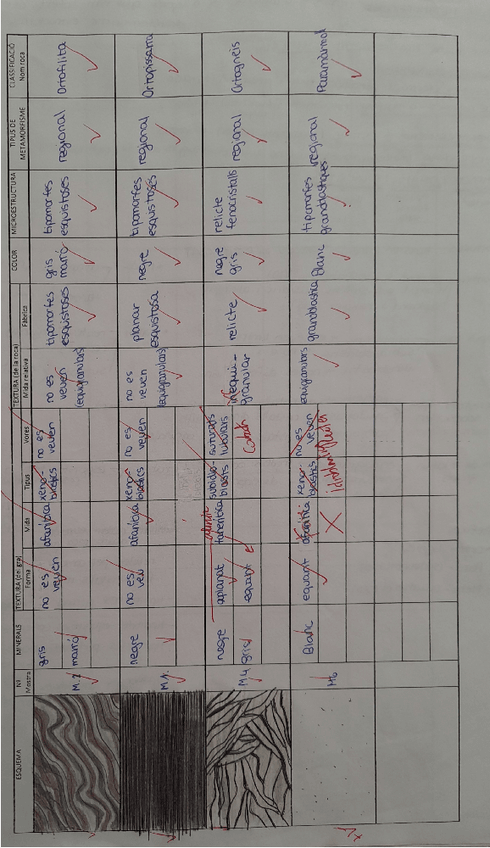 ESQUEMA
Nº Mostra
MINERALS
TEXTURA (del gra)
Forma
Mida
Tipus
Vores
TEXTURA (de la roca)
Mida relativa
Fàbrica
COLOR
MICROESTRUCTURA
TIPUS DE METAMORFISME
CLASSIFICACIÓ
Nom roca
M.2
gris
marró
no es
veuen
afanítica
xeno-
blastics
no es
veuen
no es
veuen
(equigranulars)
tipomorfes
esquistoses
gris
marró
tipomorfes
esquistoses
regional
Ortofilita
M.1
negre
no es
veu
afanítica
xeno-
blastics
no es
veuen
no es
veuen
(equigranulars)
planar
esquistosa
negre
tipomorfes
esquistoses
regional
Ortopissarra
M.4
negre
gris
aplanat
equant
faneritica
subidio-
blasts
suturats
lobulats
inequi-
granular
relicte
negre
gris
relicte
fenocristalls
regional
Ortogneis
M6
Blanc
equant
afanitica
xeno-
blastics
no es
veuen
equigranulars
granoblastica
Blanc
tipomorfes
granoblastiques
regional
Paramarmol